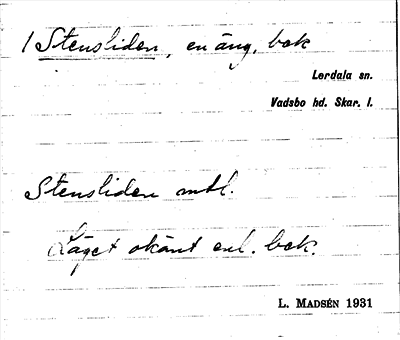 /Stensliden, en äng, bek
Lerdala sn.
Vadsbo hd. Skar. l.
Stensliden mtl.
Läget okänt enl. bek.
L. MADSÉN 1931